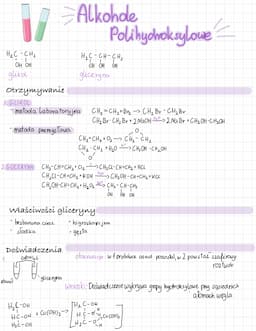 Alkohole
Polihydroksylowe
H₂C - CH₂
OH OH
glikol
H₂C - CH - CH₂
OH OH OH
gliceryna
Otrzymywanie
1. GLIKOL
- metoda laboratoryjna
CH₂=CH₂+Br₂ → CH₂Br-CH₂Br
CH₂Br-CH₂Br + 2NaOH → 2NaBr + CH₂OH-CH₂OH
- metoda przemysłowa
CH₂=CH₂+O₂ → CH₂-CH₂
O
CH₂-CH₂ + H₂O → CH₂OH-CH₂OH
O
2. GLICERYNA
CH₂-CH=CH₂+Cl₂ → CH₂Cl-CH=CH₂+HCl
CH₂Cl-CH=CH₂+KOH → CH₂OH-CH=CH₂+KCl
CH₂OH-CH=CH₂+H₂O₂ → CH₂-CH-CH₂
OH OH OH
Właściwości gliceryny
- bezbarwna ciecz
- higroskopijna
- słodka
- gęsta
Doświadczenia
gliceryna
obserwacje: w 1 probówce osad pozostał, w 2 powstał szafirowy
roztwór
wniosek: Doświadczenie wykrywa grupy hydroksylowe przy sąsiednich
atomach węgla
H₂C-OH
HC-OH + Cu(OH)₂ →
H₂C-OH